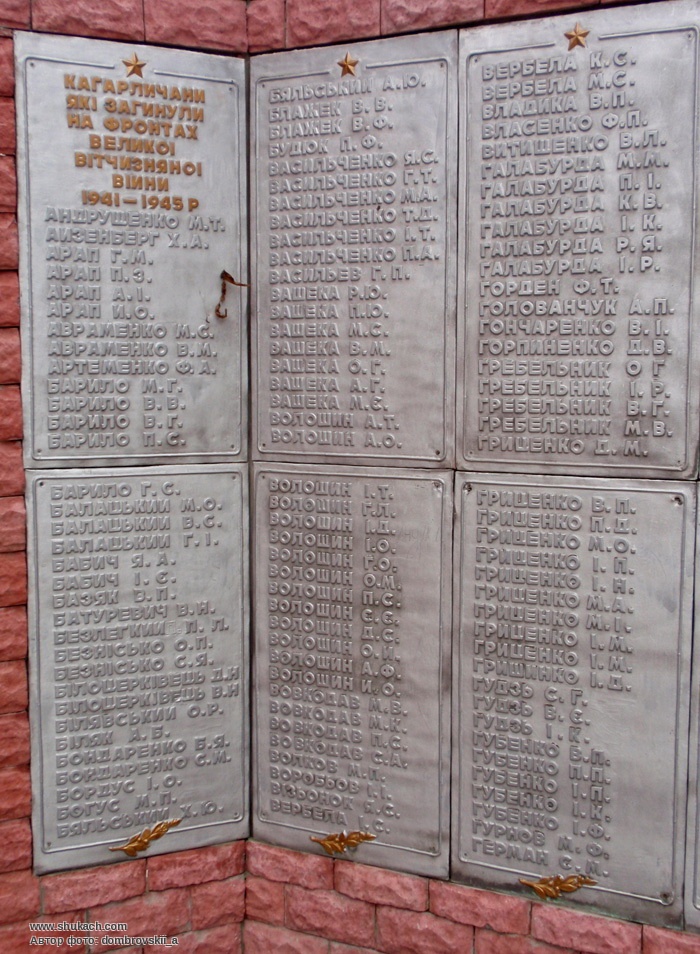 КАГАРЛИЧАНИ
ЯКІ ЗАГИНУЛИ
НА ФРОНТАХ
ВЕЛИКОЇ
ВІТЧИЗНЯНОЇ
ВІЙНИ
1941-1945 Р
АНДРУЩЕНКО М.Т.
АИЗЕНБЕРГ Х.А.
АРАП Г.М.
АРАП П.З.
АРАП А.І.
АРАП И.О.
АВРАМЕНКО М.С.
АВРАМЕНКО В.М.
АРТЕМЕНКО Ф.А.
БАРИЛО М.Г.
БАРИЛО В.В.
БАРИЛО В.Г.
БАРИЛО П.С.
БАРИЛО Г.С.
БАЛАЦЬКИЙ М.О.
БАЛАЦЬКИЙ В.С.
БАЛАЦЬКИЙ Г.І.
БАБИЧ Я.А.
БАБИЧ І.Є.
БАЗЯК В.П.
БАТУРЕВИЧ В.Н.
БЕЗЛЕГКИЙ П.Л.
БЕЗНІСЬКО О.П.
БЕЗНІСЬКО С.Я.
БІЛОЦЕРКІВЕЦЬ Д.И
БІЛОЦЕРКІВЕЦЬ В.И
БІЛЯВСЬКИЙ О.Р.
БІЛЯК А.Б.
БОНДАРЕНКО Б.Я.
БОНДАРЕНКО С.М.
БОРДУС І.О.
БОГУС М.П.
БЯЛЬСЬКИЙ Х.Ю.
БЯЛЬСЬКИЙ А.Ю.
БЛАЖЕК В.В.
БЛАЖЕК В.Ф.
БУДЮК П.Ф.
ВАСИЛЬЧЕНКО Я.С.
ВАСИЛЬЧЕНКО Г.Т.
ВАСИЛЬЧЕНКО М.А.
ВАСИЛЬЧЕНКО Т.Д.
ВАСИЛЬЧЕНКО І.Т.
ВАСИЛЬЧЕНКО П.А.
ВАСИЛЬЕВ Г.П.
ВАЩЕКА Р.Ю.
ВАЩЕКА П.Ю.
ВАЩЕКА М.С.
ВАЩЕКА В.М.
ВАЩЕКА О.Г.
ВАЩЕКА А.Г.
ВАЩЕКА М.Є.
ВОЛОШИН А.Т.
ВОЛОШИН А.О.
ВОЛОШИН І.Т.
ВОЛОШИН Г.Л.
ВОЛОШИН І.Д.
ВОЛОШИН І.О.
ВОЛОШИН Г.О.
ВОЛОШИН О.М.
ВОЛОШИН П.С.
ВОЛОШИН С.Є.
ВОЛОШИН Д.С.
ВОЛОШИН О.И.
ВОЛОШИН А.Ф.
ВОЛОШИН И.О.
ВОВКОДАВ М.В.
ВОВКОДАВ М.К.
ВОВКОДАВ П.С.
ВОВКОДАВ С.А.
ВОЛКОВ М.П.
ВОРОБЬОВ І.І.
ВІЗЬОНОК Я.С.
ВЕРБЕЛА І.С.
ВЕРБЕЛА К.С.
ВЕРБЕЛА М.С.
ВЛАДИКА В.П.
ВЛАСЕНКО Ф.П.
ВИТИЩЕНКО В.Л.
ГАЛАБУРДА М.М.
ГАЛАБУРДА П.І.
ГАЛАБУРДА К.В.
ГАЛАБУРДА І.К.
ГАЛАБУРДА Р.Я.
ГАЛАБУРДА І.Р.
ГОРДЕН Ф.Т.
ГОЛОВАНЧУК А.П.
ГОНЧАРЕНКО В.І.
ГОРПИНЕНКО Д.В.
ГРЕБЕЛЬНИК О Г
ГРЕБЕЛЬНИК І.Р.
ГРЕБЕЛЬНИК В.Г.
ГРЕБЕЛЬНИК М.В.
ГРИЦЕНКО Д.М.
ГРИЦЕНКО В.П.
ГРИЦЕНКО П.Д.
ГРИЦЕНКО М.О.
ГРИЦЕНКО І.П.
ГРИЦЕНКО І.Н.
ГРИЦЕНКО М.А.
ГРИЦЕНКО М.І.
ГРИЦЕНКО І.М.
ГРИЦЕНКО І.М.
ГРИЩИНКО І.Д.
ГУДЗЬ С.Г.
ГУДЗЬ Б.Є.
ГУДЗЬ І.К.
ГУБЕНКО В.П.
ГУБЕНКО П.П.
ГУБЕНКО І.П.
ГУБЕНКО І.К.
ГУБЕНКО І.Ф.
ГУРНОВ М.Ф.
ГЕРМАН С.М.
www.shukach.com
Автор фото: dombrovskii_a